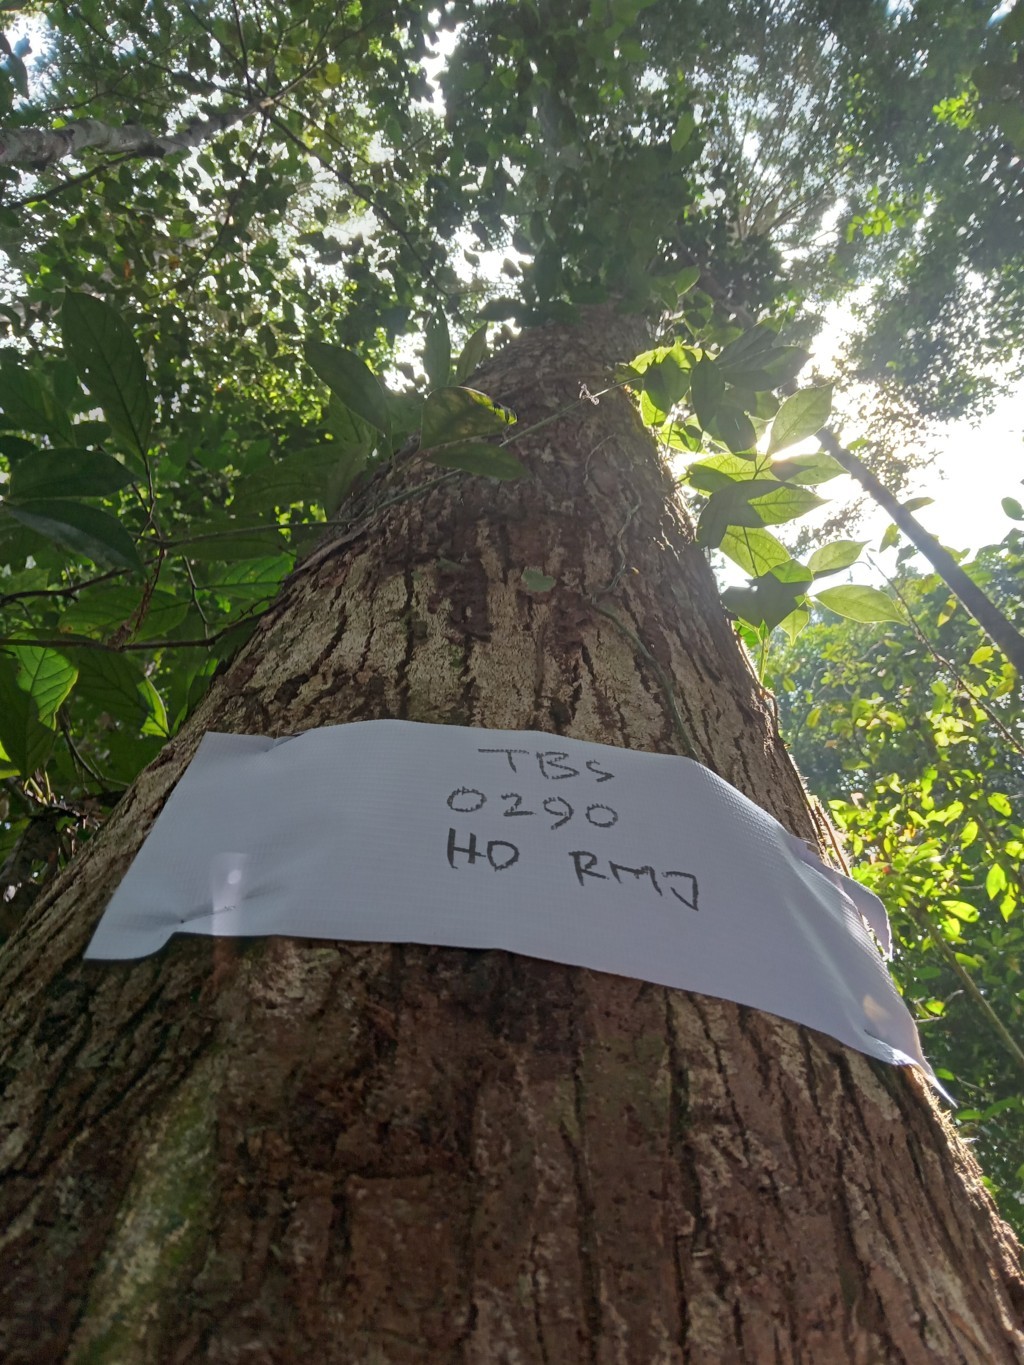 TBS
0290
HD RMJ